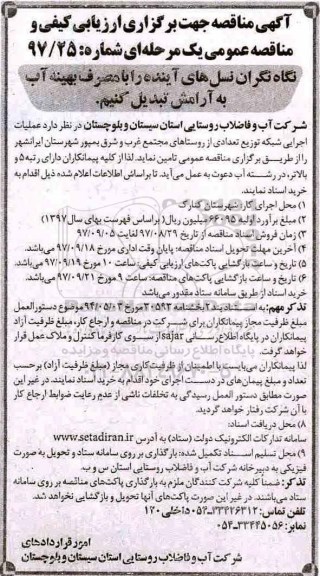 آگهی مناقصه جهت برگزاری ارزیابی کیفی و
مناقصه عمومی یک مرحله‌ای شماره: ۹۷/۲۵
نگاه نگران نسل‌های آینده را با مصرف بهینه آب
به آرامش تبدیل کنیم.
شرکت آب و فاضلاب روستایی استان سیستان و بلوچستان در نظر دارد عملیات
اجرایی شبکه توزیع تعدادی از روستاهای مجتمع غرب و شرق بمپور شهرستان ایرانشهر
را از طریق برگزاری مناقصه عمومی تامین نماید. لذا از کلیه پیمانکاران دارای رتبه ۵ و
بالاتر، در رشته آب دعوت به عمل می‌آید. تا براساس اطلاعات اعلام شده ذیل اقدام به
خرید اسناد نمایند.
۱) محل اجرای کار: شهرستان کنارک
۲) مبلغ برآورد اولیه ۶۶۰۹۵ میلیون ریال (براساس فهرست بهای سال ۱۳۹۷)
۳) زمان فروش اسناد مناقصه: از تاریخ ۹۷/۰۸/۲۹ لغایت ۹۷/۰۹/۰۵
۴) آخرین مهلت تحویل اسناد مناقصه: پایان وقت اداری مورخ ۹۷/۰۹/۱۸ می‌باشد.
۵) تاریخ و ساعت بازگشایی پاکت‌های ارزیابی کیفی: ساعت ۱۰ مورخ ۹۷/۰۹/۱۹ می‌باشد.
۶) تاریخ و ساعت بازگشایی پاکت‌های مناقصه: ساعت ۹ مورخ ۹۷/۰۹/۲۱ می‌باشد.
خرید اسناد از طریق سامانه ستاد مقدور می‌باشد
تذکر مهم: به استناد بند ۲ بخشنامه ۲۰۵۹۳ مورخ ۹۴/۰۵/۰۳ موضوع دستورالعمل
مبلغ ظرفیت مجاز پیمانکاران برای شرکت در مناقصه و ارجاع کار، مبلغ ظرفیت آزاد
پیمانکاران در پایگاه اطلاع‌رسانی sajar از سوی کارفرما کنترل و ملاک عمل قرار
خواهد گرفت.
لذا پیمانکاران می‌بایست با اطمینان از ظرفیت کاری مجاز (مبلغ ظرفیت آزاد) برحسب
تعداد و مبلغ پیمان‌های در دست اجرای خود اقدام به خرید اسناد نمایند. در غیر این
صورت مطابق دستور العمل رسیدگی به تخلفات ناشی از عدم رعایت ضوابط ارجاع کار
با آن شرکت رفتار خواهد گردید.
۸) محل دریافت اسناد:
سامانه تدارکات الکترونیک دولت (ستاد) به آدرس www.setadiran.ir
۹) محل تسلیم اسناد تکمیل شده: بارگذاری بر روی سامانه ستاد و تحویل به صورت
فیزیکی به دبیرخانه شرکت آب و فاضلاب روستایی استان س و ب.
تذکر: ضمنا کلیه شرکت کنندگان ملزم به بارگذاری پاکت‌های مناقصه بر روی سامانه
ستاد می‌باشند. در غیر این صورت پاکت‌های آنها تحویل و بازگشایی نخواهد شد.
تلفن تماس: ۳۳۴۲۶۳۱۲-۰۵۴ داخلی ۱۲۰
نمابر: ۳۳۴۴۵۰۵۶-۰۵۴
امور قراردادهای
شرکت آب و فاضلاب روستایی استان سیستان و بلوچستان